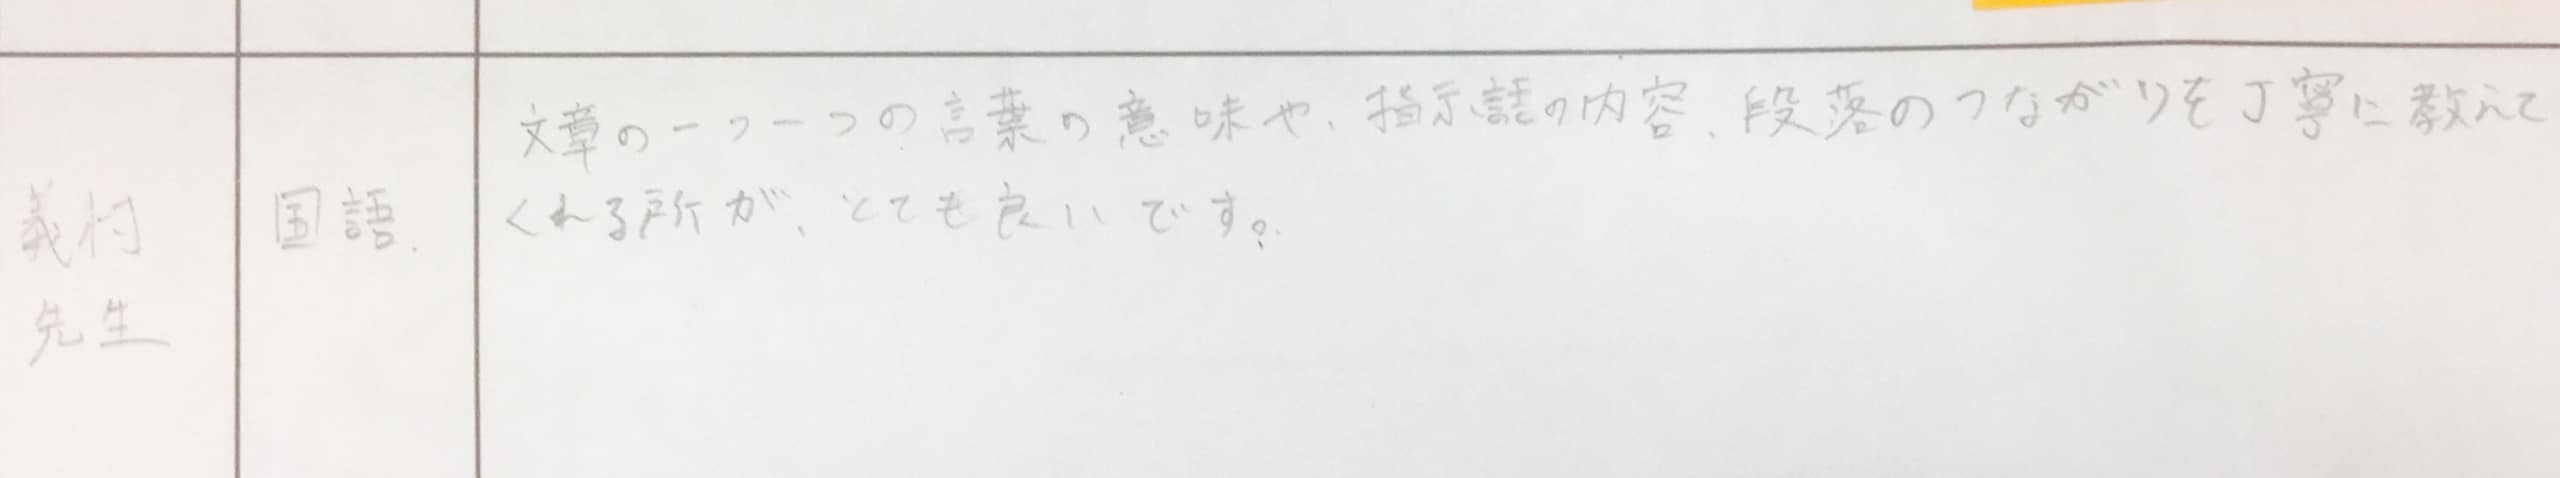 義村
先生
国語
文章の一つ一つの言葉の意味や、指示語の内容、段落のつながりを丁寧に教えて
くれる所が、とても良いです。